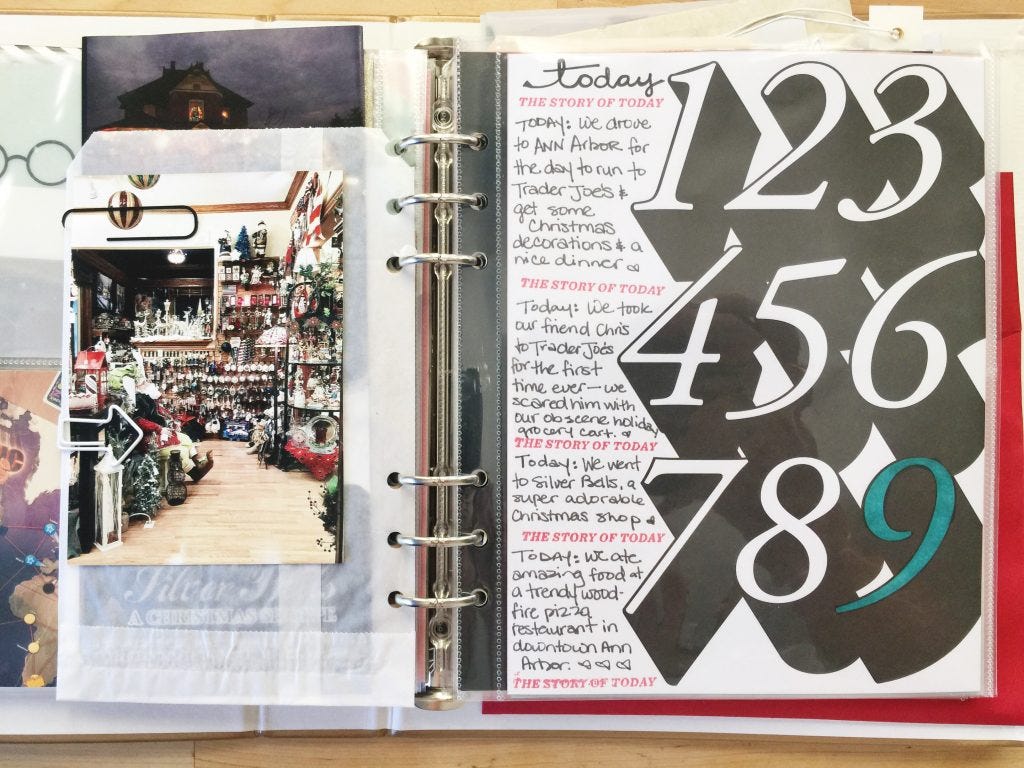 Silver Bells
A CHRISTMAS SHOPPE
today
THE STORY OF TODAY
TODAY: We drove
to ANN ARBOR for
the day to run to
Trader Joe's &
get some
Christmas
decorations & a
nice dinner ♡
THE STORY OF TODAY
Today: We took
our friend Chris
to Trader Joe's
for the first
time ever—we
scared him with
our obscene holiday
grocery cart. ♡
THE STORY OF TODAY
Today: We went
to Silver Bells, a
super adorable
Christmas shop ♡
THE STORY OF TODAY
TODAY: We ate
amazing food at
a trendy wood-
fire pizza
restaurant in
downtown Ann
Arbor. ♡ ♡ ♡
THE STORY OF TODAY
123
456
789